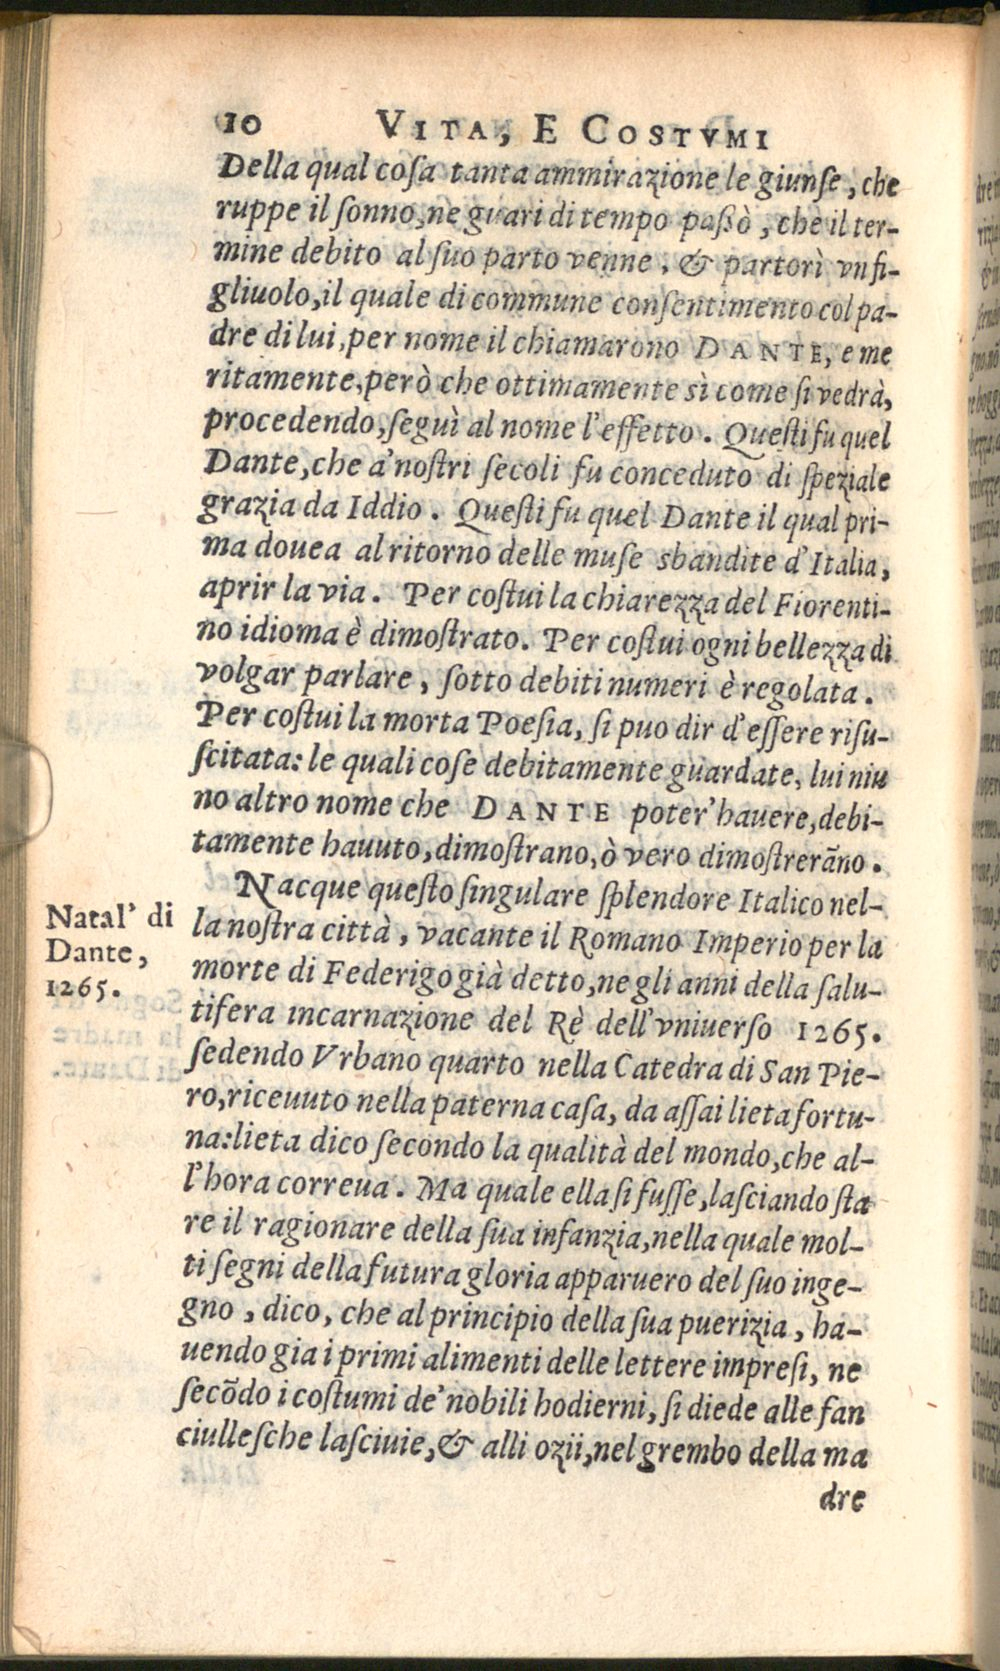 10 VITA, E COSTVMI
Della qual coſa tanta ammirazione le giunſe, che
ruppe il ſonno, ne guari di tempo paßò, che il ter-
mine debito al ſuo parto venne, & partorì vn fi-
gliuolo, il quale di commune conſentimento col pa-
dre di lui, per nome il chiamarono DANTE, e me
ritamente, però che ottimamente sì come ſi vedrà,
procedendo, ſeguì al nome l'effetto. Queſti fu quel
Dante, che a' noſtri ſecoli fu conceduto di ſpeziale
grazia da Iddio. Queſti fu quel Dante il qual pri-
ma douea al ritorno delle muſe sbandite d'Italia,
aprir la via. Per coſtui la chiarezza del Fiorenti-
no idioma è dimoſtrato. Per coſtui ogni bellezza di
volgar parlare, ſotto debiti numeri è regolata.
Per coſtui la morta Poeſia, ſi puo dir d'eſſere riſu-
ſcitata: le quali coſe debitamente guardate, lui niu
no altro nome che DANTE poter' hauere, debi-
tamente hauuto, dimoſtrano, ò vero dimoſtrerāno.
Nacque queſto ſingulare ſplendore Italico nel-
la noſtra città, vacante il Romano Imperio per la
morte di Federigo già detto, negli anni della ſalu-
tifera incarnazione del Rè dell'vniuerſo 1265.
ſedendo Vrbano quarto nella Catedra di San Pie-
ro, riceuuto nella paterna caſa, da aſſai lieta fortu-
na: lieta dico ſecondo la qualità del mondo, che al-
l'hora correua. Ma quale ella ſi fuſſe, laſciando ſta
re il ragionare della ſua infanzia, nella quale mol-
ti ſegni della futura gloria apparuero del ſuo inge-
gno, dico, che al principio della ſua puerizia, ha-
uendo gia i primi alimenti delle lettere impreſi, ne
ſecōdo i coſtumi de' nobili hodierni, ſi diede alle fan
ciulleſche laſciuie, & alli ozii, nel grembo della ma
dre
Natal' di
Dante,
1265.